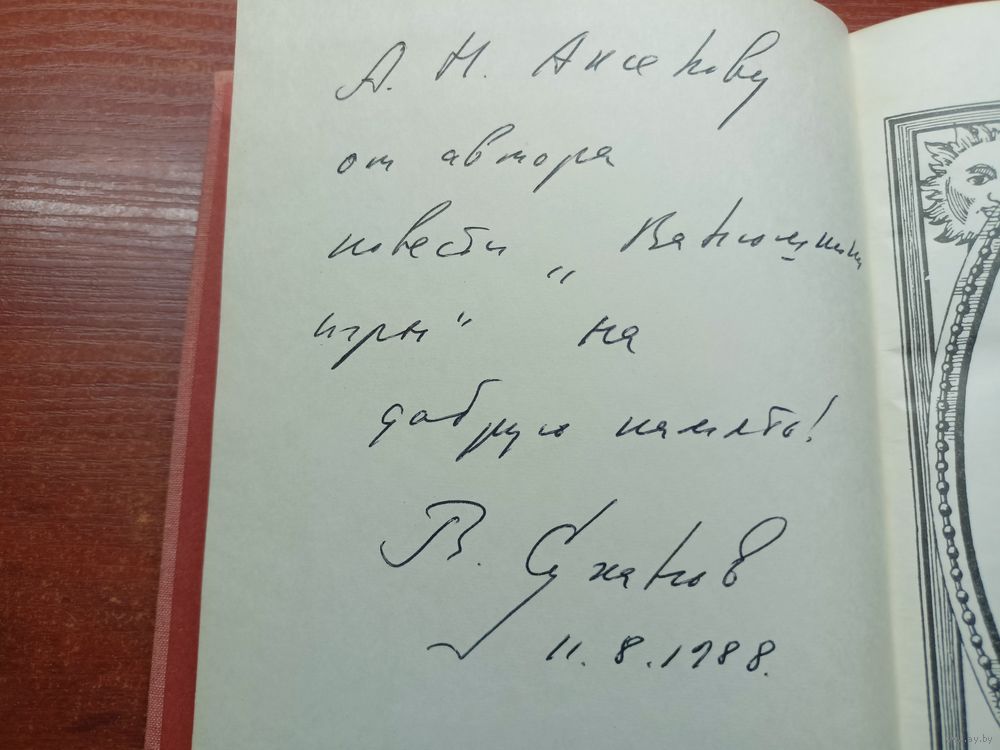 А. Н. Аксенову
от автора
повести „Ванюшкины
игры“ на
добрую память!
В. Суханов
11.8.1988.